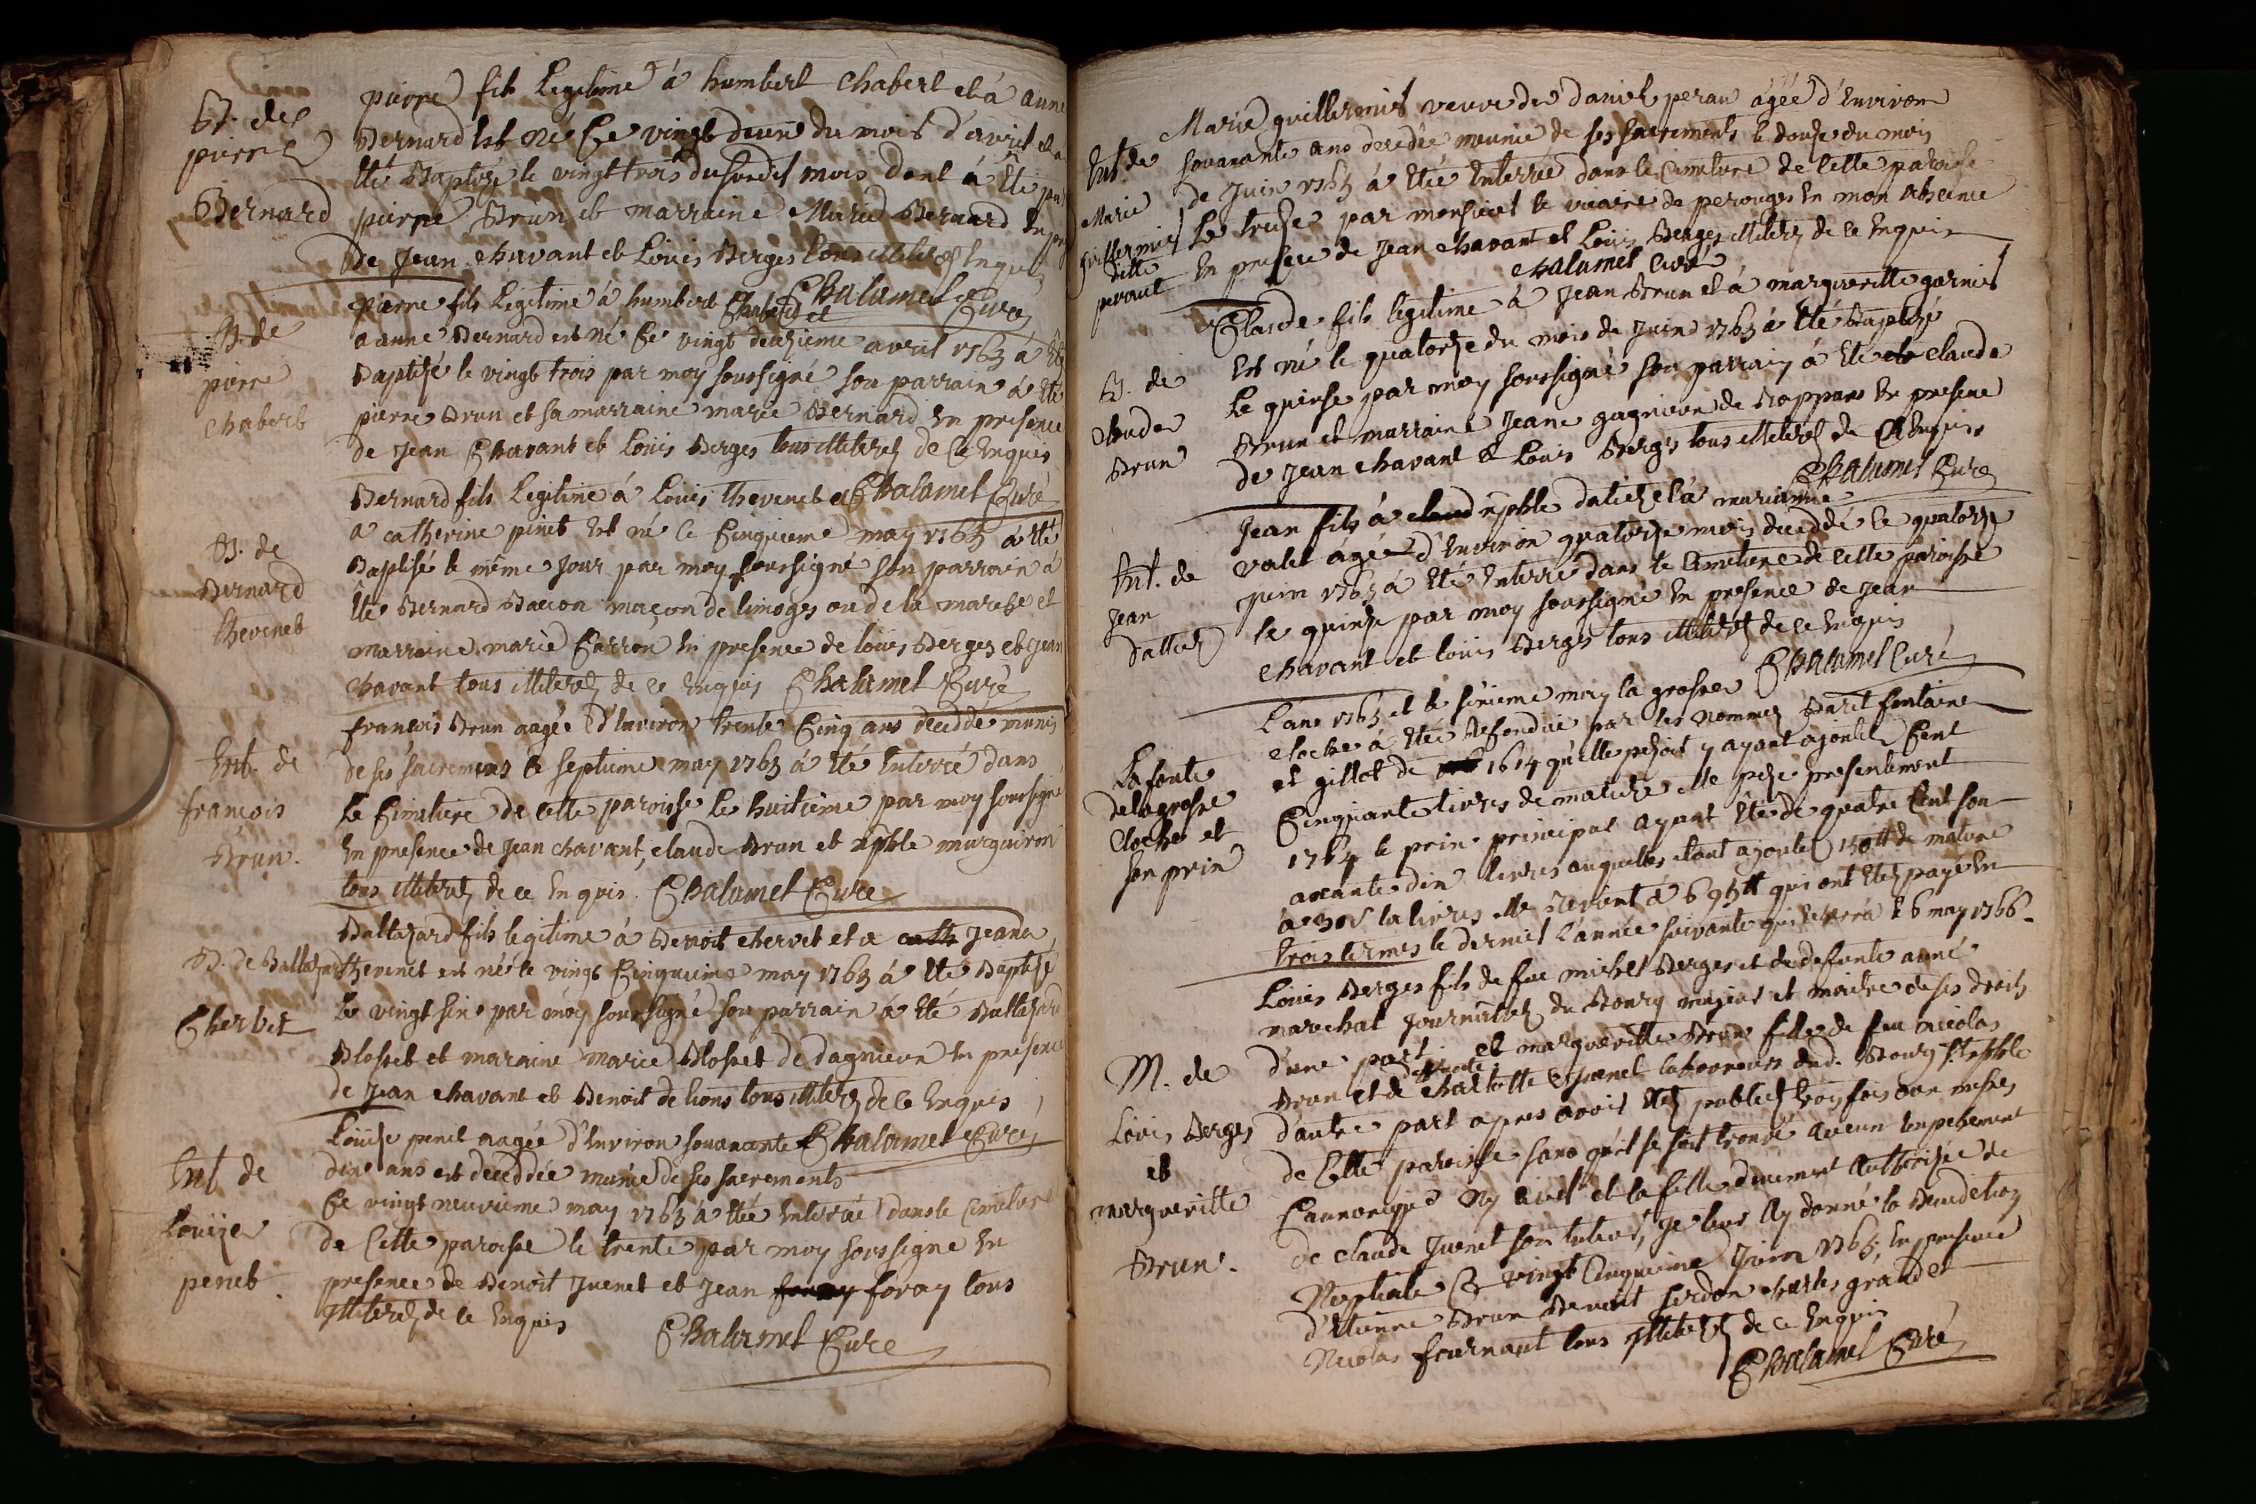 B. de
pierre
Bernard
pierre fils Legitime à humbert Chabert et à anne
Bernard est né Le vingt deux du mois d'avril et a
été Baptisé le vingt trois dususdit mois dont à été
pierre Brun et marraine Marie Bernard En
de Jean chavant et Louis Berges tous illiterés Enquis
Chalamel Curé
B. de
pierre
chabert
pierre fils Legitime à humbert Chabert et
a anne Bernard est né Ce vingt deuzieme avril 1763 à été
Baptisé le vingt trois par moy soussigné son parrain à été
pierre Brun et sa marraine marie Bernard En presence
de Jean Chavant et Louis Berges tous illiterés de Ce Enquis
Chalamel Curé
B. de
Bernard
thevenet
Bernard fils Legitime à Louis thevenet et
a catherine pinet Est né Ce Cinquieme may 1763 à été
Baptisé le même Jour par moy soussigné son parrain à
été Bernard Bacon maçon de limoges ou de la marche et
marraine marie Carron En presence de louis Berges et Jean
chavant tous illiterés de ce Enquis Chalamel Curé
Ent. de
françois
Brun.
francois Brun aagée d'Environ trente Cinq ans decedde munis
de ses sacremens le septieme may 1763 à été Enterré dans
Le Cimetiere de Cette paroisse Le huitieme par moy soussigné
En presence de Jean chavant, claude Brun et
tous illiterés de ce Enquis. Chalamel Curé
B. de Baltazard
Cherbet
Baltazard fils legitime à Benoit chervet et a Jeane
thevenet est né le vingt Cinquieme may 1763 à été Baptisé
Le vingt six par moy soussigné son parrain à été Baltazard
Blosset et maraine marie Blosset de dagnieux En presence
de Jean chavant et Benoit de lions tous illiterés de Ce Enquis
Ent de
Louize
penet.
Louize penet aagée d'Environ souxante Chalamel Curé
dix ans est deceddée munie de ses sacrements
Ce vingt neuvieme may 1763 à étée Enterrée dans le Cimetiere
de Cette paroisse le trente par moy soussigné En
presence de Benoit Juenet et Jean foray tous
illiterés de Ce Enquis
Chalamel Curé
Ent. de
Marie
guillermit
ditte
peraut
Marie guillermit veuve de daniel peran agée d'Environ
souxante ans decedée meunie de ses sacrements le douze du mois
de Juin 1763 à étée Enterrée dans le Cimetiere de Cette paroisse
Le treize par monsieur le vicaire de perouges En mon absence
En presence de Jean chavant et Louis Berges illiterés de Ce Enquis
Chalamel Curé
B. de
claude
Brun
Claude fils legitime à Jean Brun et à margueritte garnier
Est né le quatorze du mois de Juin 1763 à été baptisé
Le quinse par moy soussigné son parrain à été claude
Brun et marraine Jeane gagnieux de En presence
de Jean chavant et Louis Berges tous illiterés de Ce Enquis
Chalamel Curé
Ent. de
Jean
dattier
Jean fils à datier et à marianne
valet agée d'Environ quatorze mois deceddé le quatorze
juin 1763 à été Enterré dans le Cimetiere de Cette paroisse
le quinze par moy soussigné En presence de Jean
chavant et louis Berges tous illiterés de ce Enquis
Chalamel Curé
La fonte
de la grosse
Cloche et
son prix
L'ans 1763 et le sixieme may la grosse
cloche à étée Refondüe par les nommés Baret fontaine
et gillot de 1614 qu'elle pesoit y ayant ajouté Cent
Cinquante livres de matiere elle pese presentement
1764 le prix principal ayant été de quatre Cent soi
axante dix livres auquelles etant ajouté 150tt de matiere
à 30s la livres elle Revient à 695tt qui ont étés payé En
trois termes le dernier L'année suivante qui Echerra le 6 may 1766.
M. de
Louis Berges
et
margueritte
Brun.
Louis Berges fils de feu michel Berges et de defunte anne
marechal Journalier du Bourg majeur et maitre de ses droits
d'une part et margueritte Brun fille de feu nicolas
Brun et de defunte Charlotte Espanel laboureurs dud. Bourg
d'autre part apres avoir étés publiés trois fois aux messes
de Cette paroisse sans qu'il se soit trouvé aucun Empechement
Cannonique Ny civil et la fille duement Authorisée de
de claude Juenet son tuteur, Je leur Ay donné la Benediction
Nuptiale Ce vingt Cinquieme Juin 1763, En presence
d'Etienne Brun Benoit serdon charles grandet
Nicolas fournaut tous illiterés de ce Enquis
Chalamel Curé